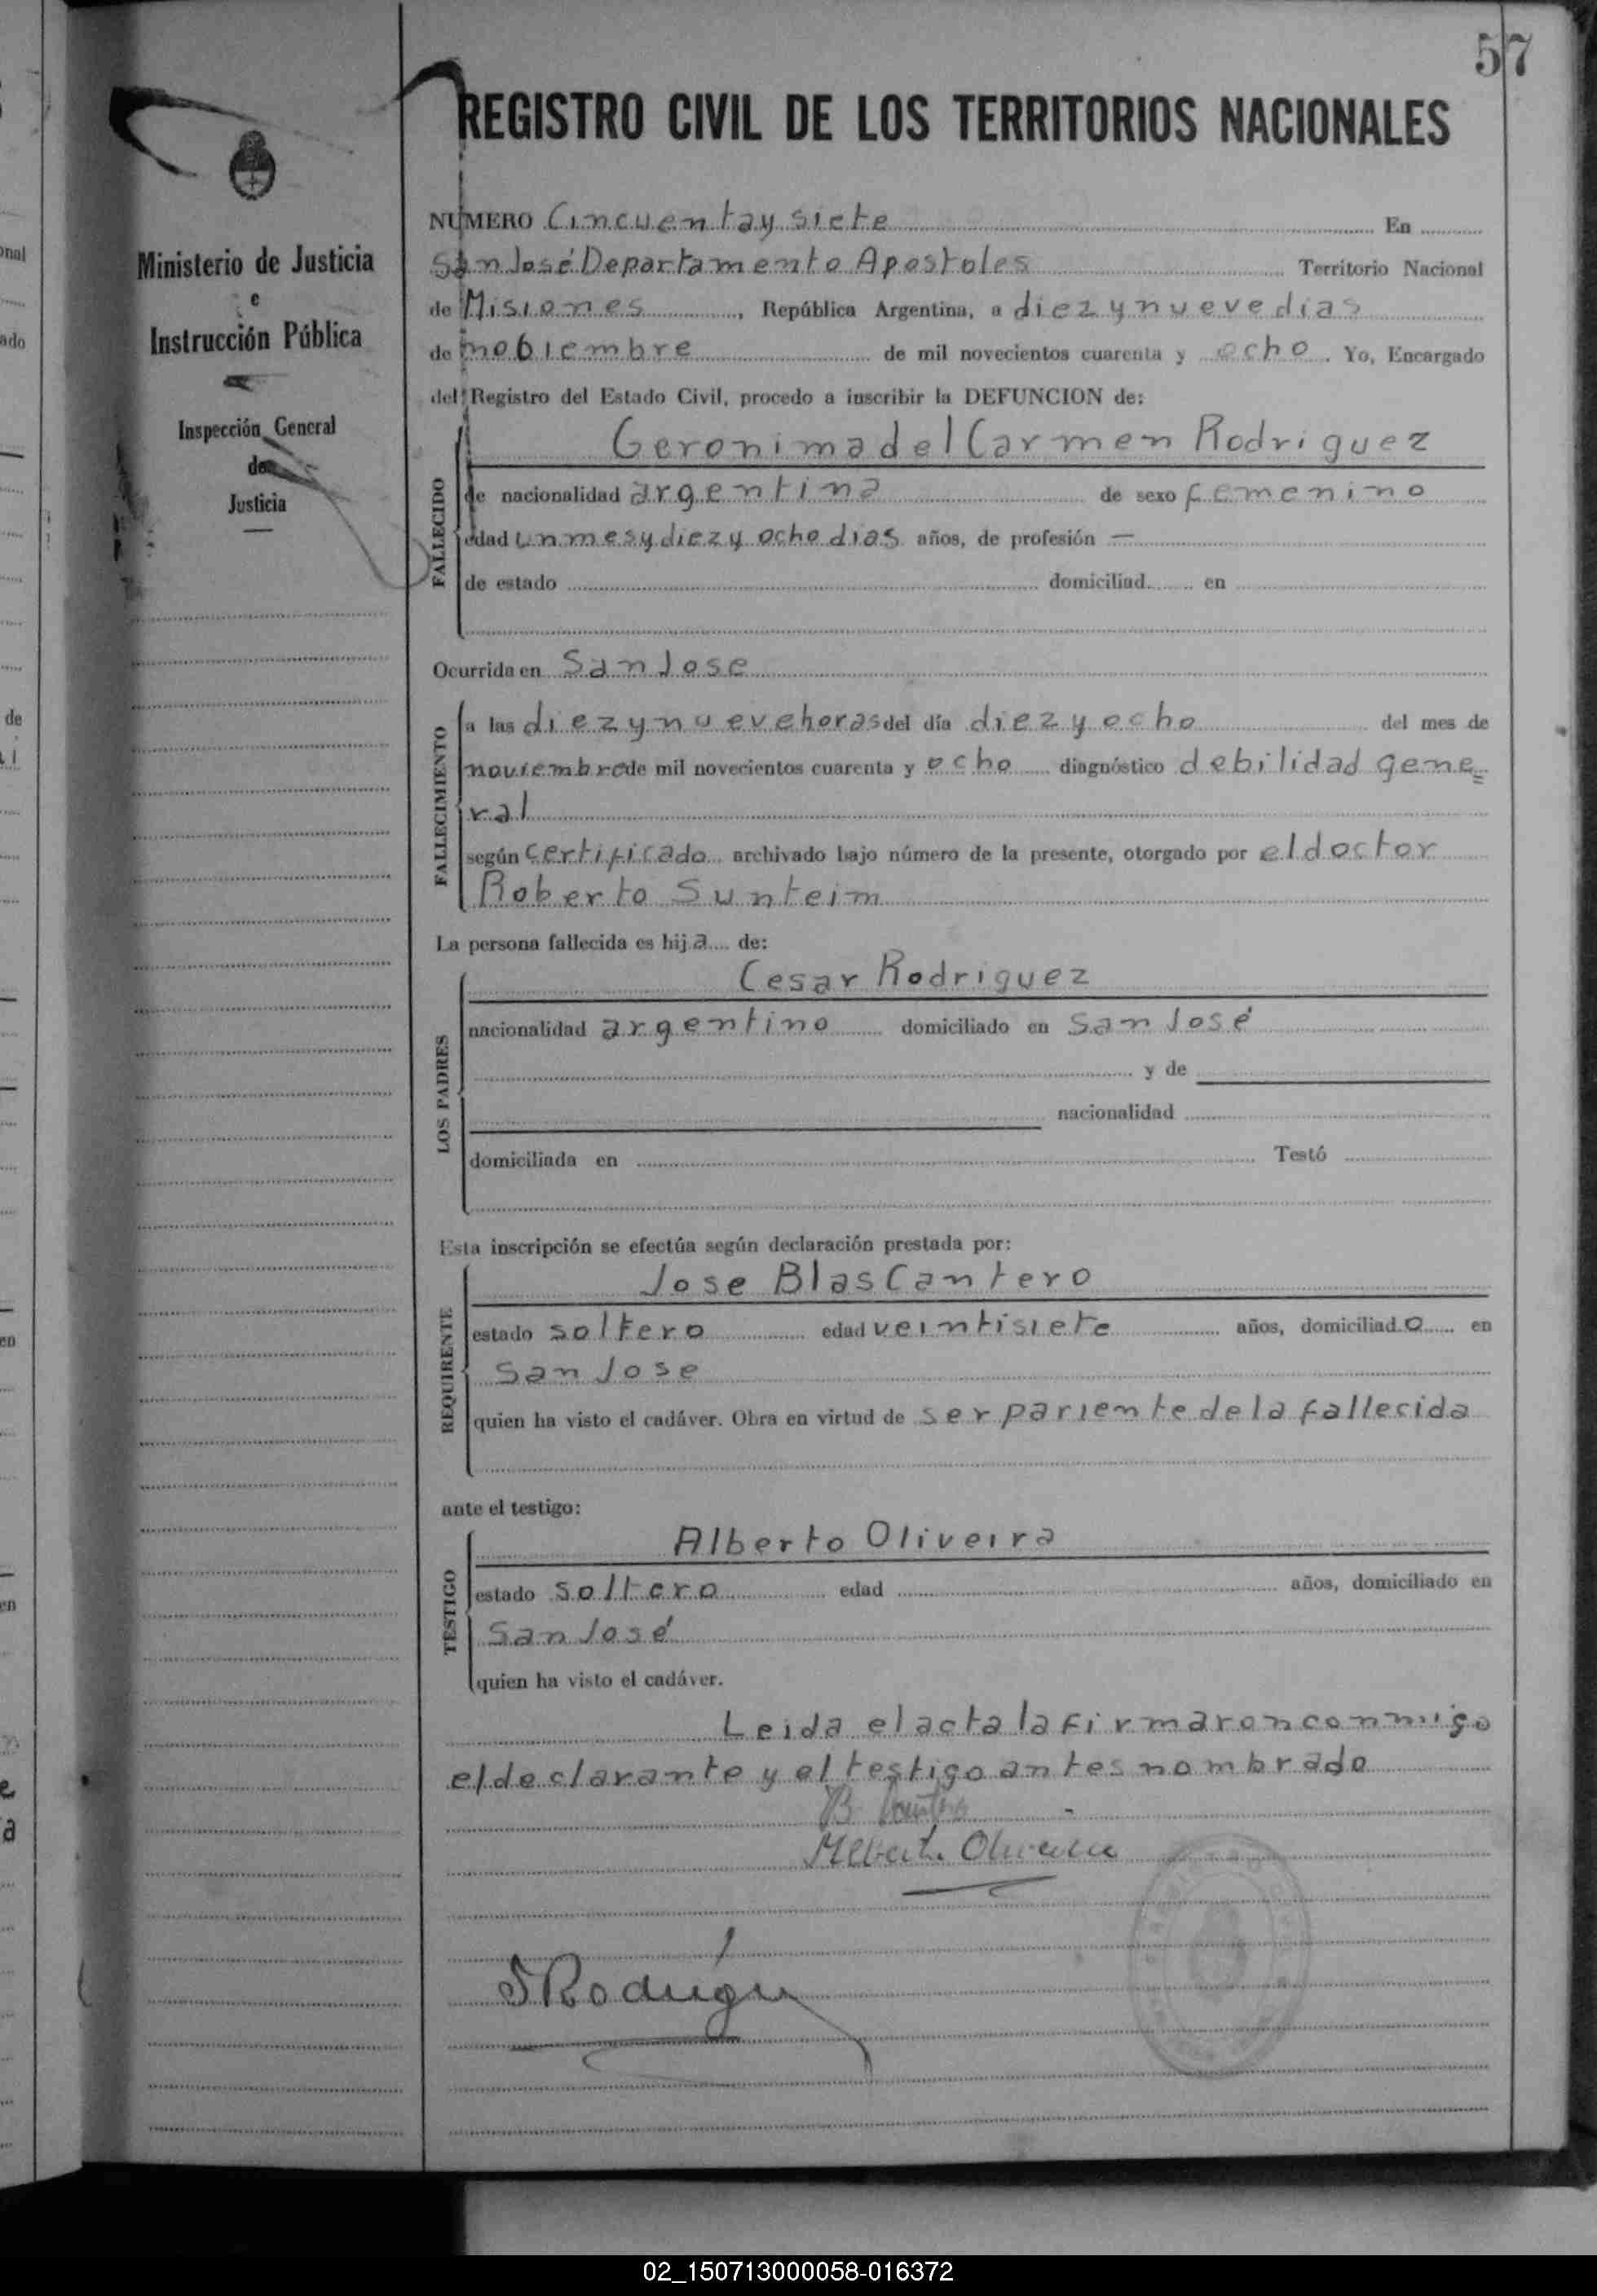 57
REGISTRO CIVIL DE LOS TERRITORIOS NACIONALES
Ministerio de Justicia
e
Instrucción Pública
Inspección General
de
Justicia
NÚMERO Cincuenta y siete En
San José Departamento Apostoles Territorio Nacional
de Misiones, República Argentina, a diez y nueve dias
de nobiembre de mil novecientos cuarenta y ocho. Yo, Encargado
del Registro del Estado Civil, procedo a inscribir la DEFUNCION de:
FALLECIDO
Geronima del Carmen Rodriguez
de nacionalidad argentina de sexo femenino
edad un mes y diez y ocho dias años, de profesión —
de estado domiciliad en
Ocurrida en San Jose
FALLECIMIENTO
a las diez y nueve horas del día diez y ocho del mes de
noviembre de mil novecientos cuarenta y ocho diagnóstico debilidad gene=
ral
según certificado archivado bajo número de la presente, otorgado por el doctor
Roberto Sunteim
La persona fallecida es hija de:
LOS PADRES
Cesar Rodriguez
nacionalidad argentino domiciliado en San José
y de
nacionalidad
domiciliada en Testó
Esta inscripción se efectúa según declaración prestada por:
REQUIRENTE
Jose Blas Cantero
estado soltero edad veintisiete años, domiciliado en
San Jose
quien ha visto el cadáver. Obra en virtud de ser pariente de la fallecida
ante el testigo:
TESTIGO
Alberto Oliveira
estado soltero edad años, domiciliado en
San José
quien ha visto el cadáver.
Leida el acta la firmaron conmigo
el declarante y el testigo antes nombrado
B Cantero
Alberto Oliveira
02_150713000058-016372